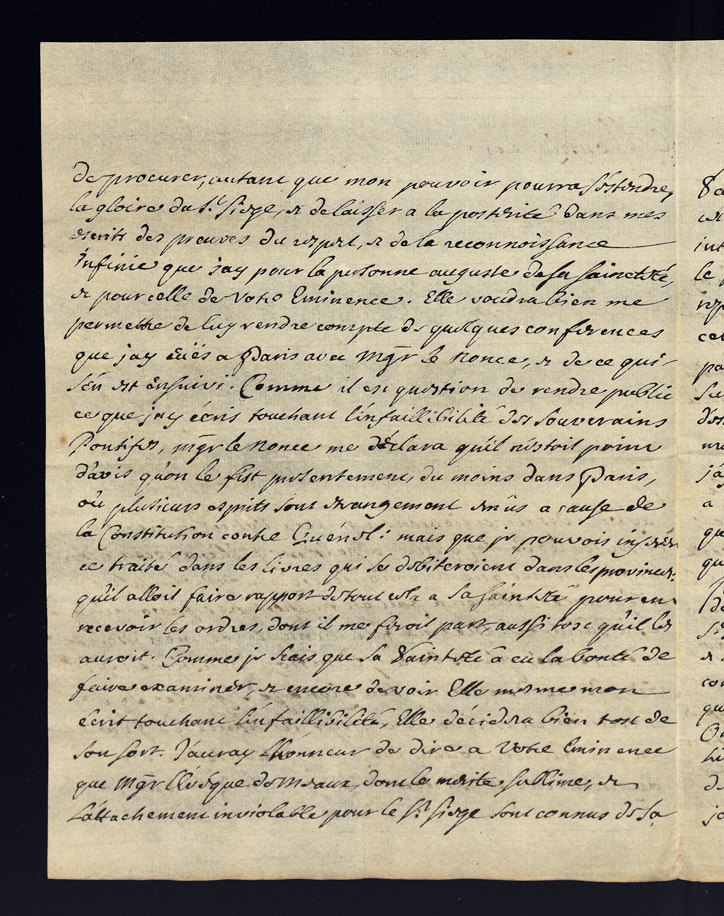 De procurer, autant que mon pouvoir pourra s'etendre,
la gloire du St. Siege, et de laisser a la posterité dans mes
escrits des preuves du respect, et de la reconnoissance
infinie que j'ay pour la personne auguste de sa Sainteté,
et pour celle de Votre Eminence. Elle voudra bien me
permettre de luy rendre compte de quelques conferences
que j'ay eües a Paris avec Mgr le Nonce, et de ce qui
s'en est ensuivi. Comme il est question de rendre public
ce que j'ay écris touchant l'infaillibilité des souverains
Pontifes, Mgr le Nonce me déclara qu'il n'estoit point
d'avis qu'on le fist presentement, du moins dans Paris,
où plusieurs esprits sont étrangement émûs a cause de
la Constitution contre Quénel: mais que je pouvois insérer
ce traité dans les livres qui se debiteroient dans les provinces:
qu'il alloit faire rapport de tout cela a sa Sainteté pour en
recevoir les ordres, dont il me feroit part aussi tost qu'il les
auroit. Comme je scais que sa Sainteté a eu la bonté de
faire examiner, et encore de voir Elle mesme mon
écrit touchant l'infaillibilité, Elle décidera bien tost de
son sort. J'auray l'honneur de dire a Votre Eminence
que Mgr l'Evéque de Meaux, dont le merite sublime, et
l'attachement inviolable pour le St. Siege sont connus de sa